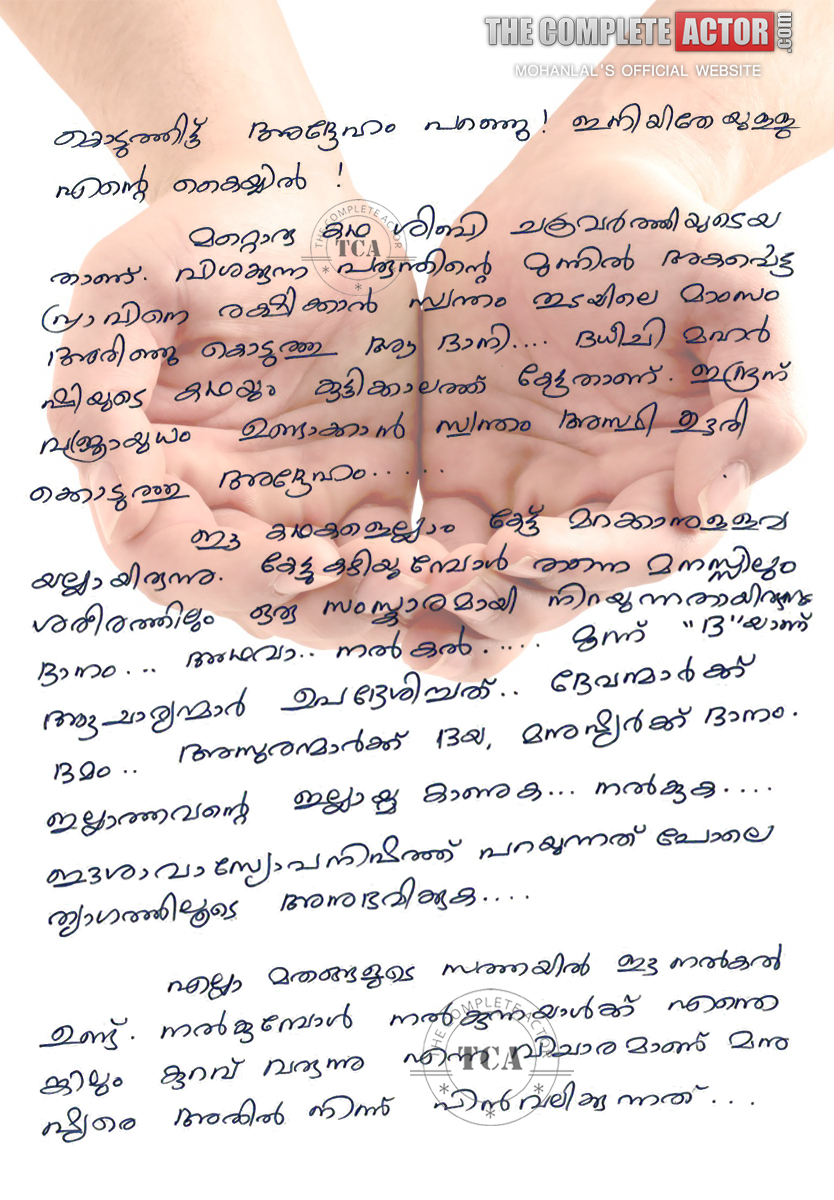 THE COMPLETE ACTOR .com
MOHANLAL'S OFFICIAL WEBSITE
കൊടുത്തിട്ട് അദ്ദേഹം പറഞ്ഞു! ഇനിയിതേയുള്ളു
എന്റെ കൈയ്യിൽ!
മറ്റൊരു കഥ ശിബി ചക്രവർത്തിയുടെയ
താണ്. വിശക്കുന്ന പരുന്തിന്റെ മുന്നിൽ അകപ്പെട്ട
പ്രാവിനെ രക്ഷിക്കാൻ സ്വന്തം തുടയിലെ മാംസം
അരിഞ്ഞു കൊടുത്ത ആ ദാനി.... ദധീചി മഹർ
ഷിയുടെ കഥയും കുട്ടിക്കാലത്ത് കേട്ടതാണ്. ഇന്ദ്രന്
വജ്രായുധം ഉണ്ടാക്കാൻ സ്വന്തം അസ്ഥി ഊരി
ക്കൊടുത്തു അദ്ദേഹം......
ഈ കഥകളെല്ലാം കേട്ട് മറക്കാനുള്ളവ
യല്ലായിരുന്നു. കേട്ടുകഴിയുമ്പോൾ തന്നെ മനസ്സിലും
ശരീരത്തിലും ഒരു സംസ്കാരമായി നിറയുന്നതായിരുന്നു
ദാനം... അഥവാ.. നൽകൽ..... മൂന്ന് "ദ"യാണ്
ആചാര്യന്മാർ ഉപദേശിച്ചത്.. ദേവന്മാർക്ക്
ദമം.. അസുരന്മാർക്ക് ദയ, മനുഷ്യർക്ക് ദാനം.
ഇല്ലാത്തവന്റെ ഇല്ലായ്മ കാണുക... നൽകുക....
ഈശാവാസ്യോപനിഷത്ത് പറയുന്നത് പോലെ
ത്യാഗത്തിലൂടെ അനുഭവിക്കുക....
എല്ലാ മതങ്ങളുടെ സത്തയിൽ ഈ നൽകൽ
ഉണ്ട്. നൽകുമ്പോൾ നൽകുന്നയാൾക്ക് എന്തെ
ങ്കിലും കുറവ് വരുന്നു എന്ന വിചാരമാണ് മനു
ഷ്യരെ അതിൽ നിന്ന് പിൻവലിക്കുന്നത്...
THE COMPLETE ACTOR
TCA
THE COMPLETE ACTOR
TCA